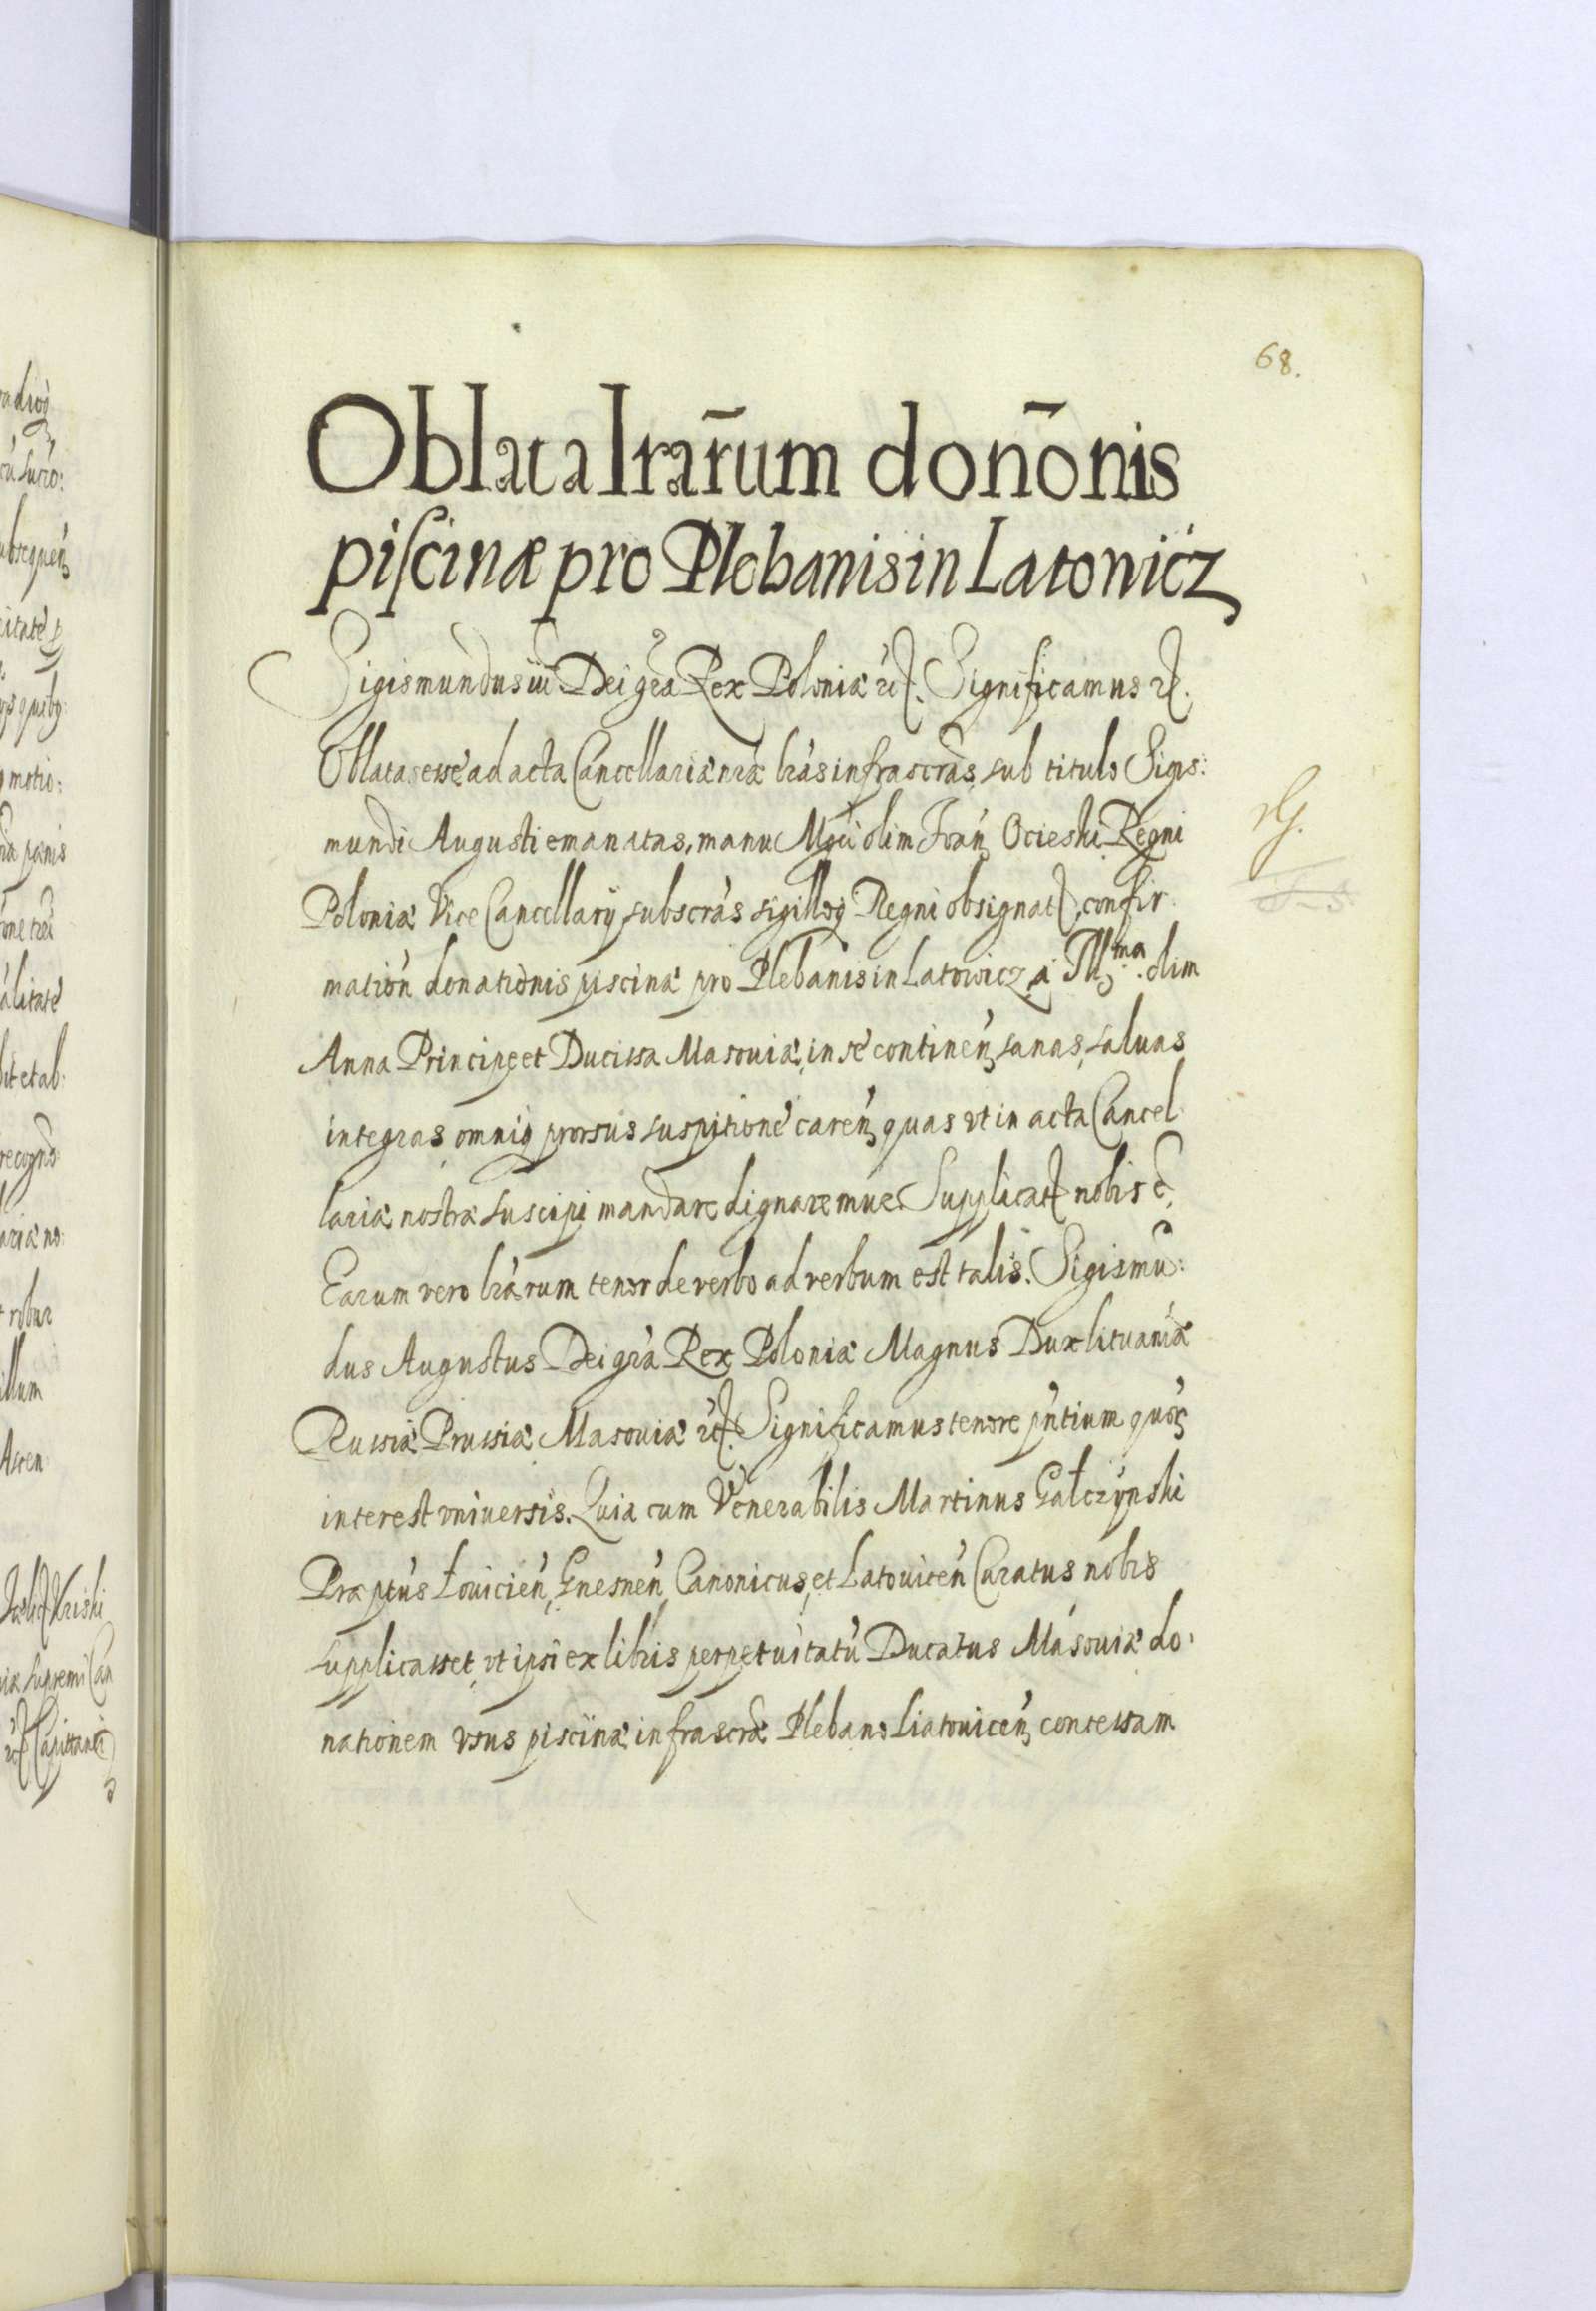 68.
Oblata lrarum donõnis
piscinæ pro Plebanis in Latowicz
Sigismundus iii Dei gra Rex Poloniæ etc. Significamus etc.
Oblatas esse ad acta Cancellariæ nræ lras infrascras, sub titulo Sigis:
mundi Augusti emanatas, manu Mgci olim Ioan Ocieski Regni
Poloniæ Vice Cancellarij subscras sigilloq Regni obsignat, confir
mation donationis piscinæ pro Plebanis in Latowicz, a Ill ma. olim
Anna Principe et Ducissa Masouiæ, in se continen, sanas, saluas
integras, omniq prorsus suspitione caren, quas vt in acta Cancel
lariæ nostræ suscipi mandare dignaremur. Supplicat nobis
Earum vero lrarum tenor de verbo ad verbum est talis. Sigismu:
dus Augustus Dei gra Rex Poloniæ Magnus Dux lituaniæ
Russiæ Prussiæ Masouiæ etc. Significamus tenore pntium quor
interest vniuersis. Quia cum Venerabilis Martinus Gałczynski
Præptus Łouicien, Gnesnen Canonicus, et Latouicen Curatus nobis
supplicasset, vt ipsi ex libris perpetuitatu Ducatus Masouiæ do:
nationem vsus piscinæ infrascræ Plebano Liatouicen concessam